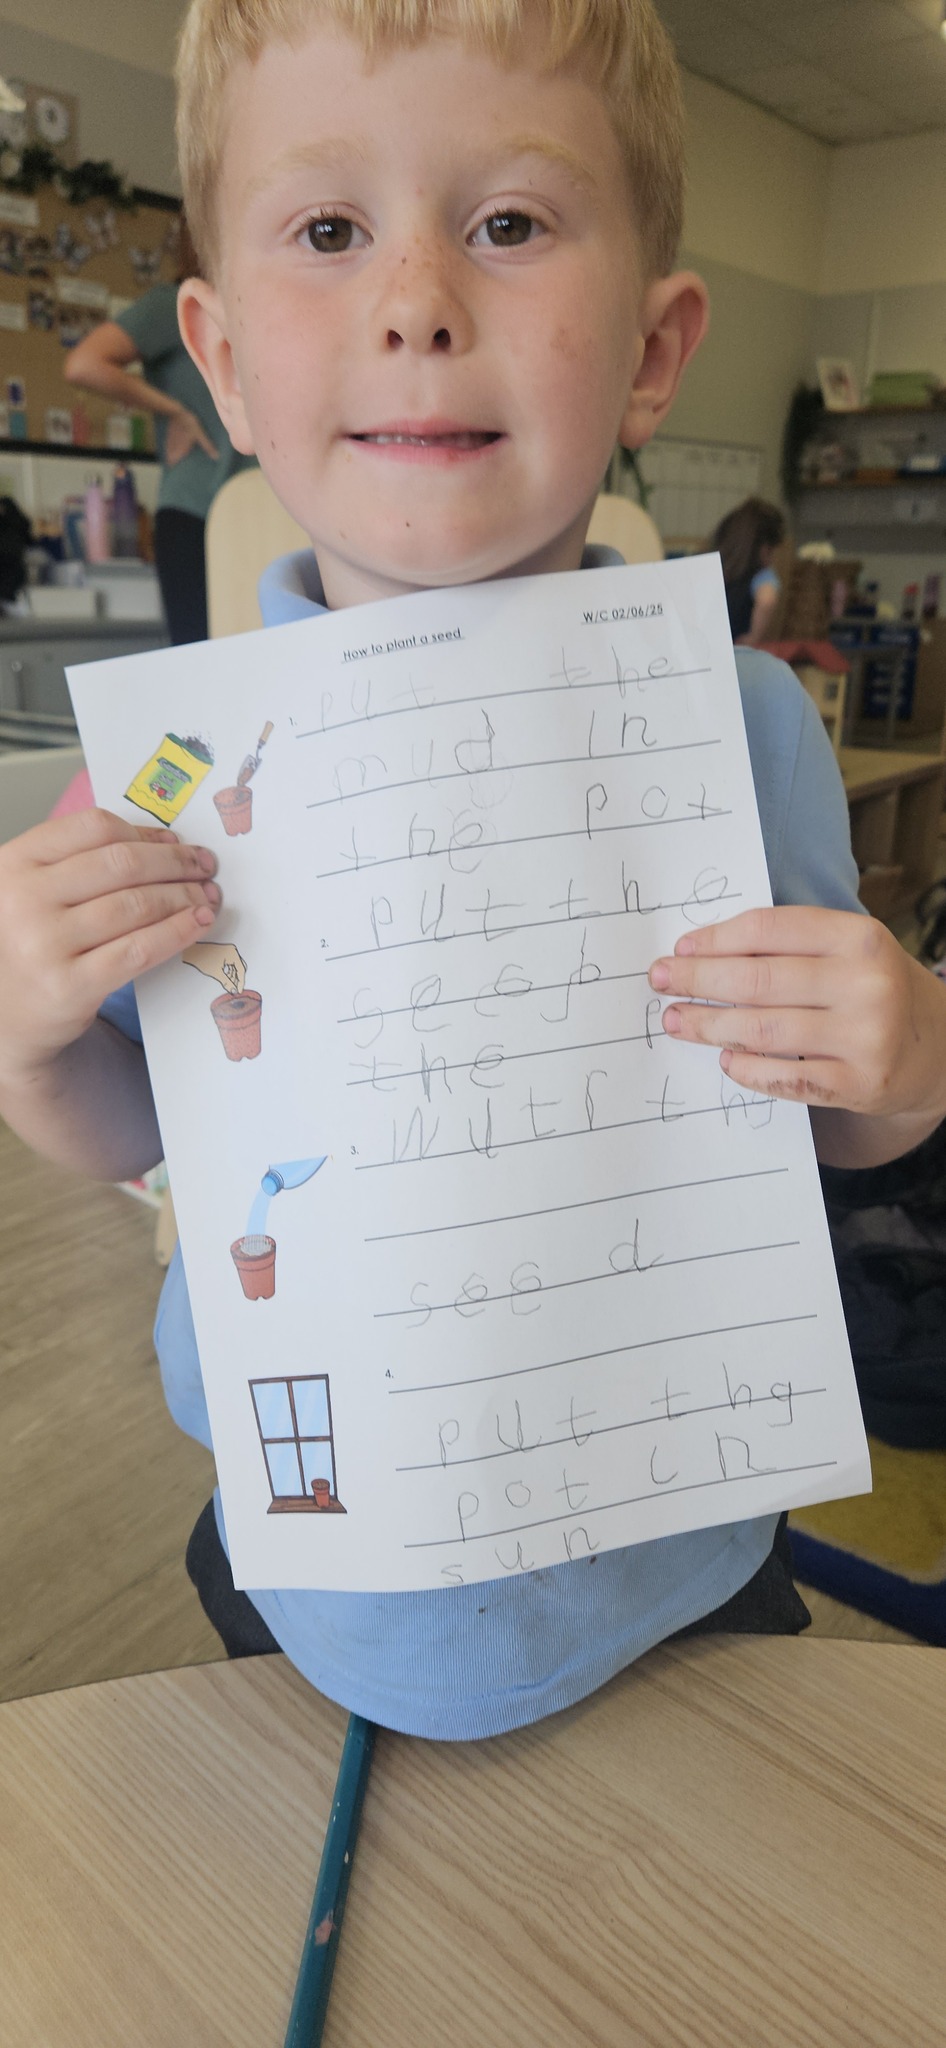 How to plant a seed
W/C 02/06/25
1. put the
mud in
the pot
2. put the
seed
the
3. wutr the
seed
4.
put the
pot in
sun